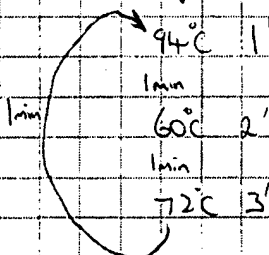 94°C 1'
1min
1min
60°C 2'
1min
72°C 3'